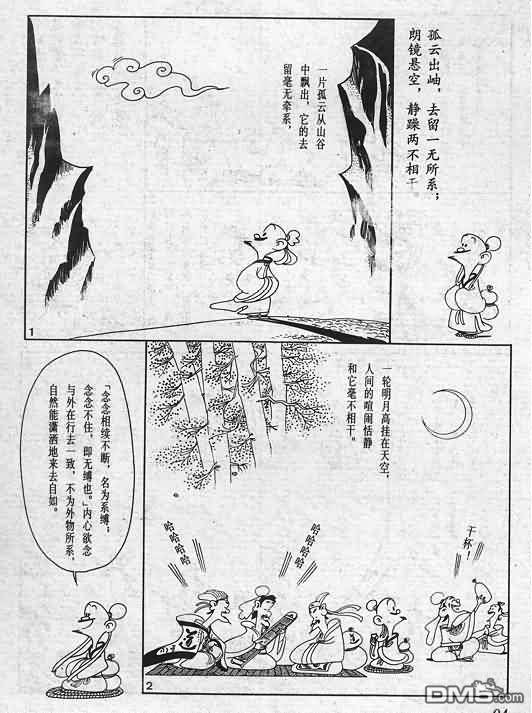 孤云出岫，去留一无所系；
朗镜悬空，静躁两不相干。
一片孤云从山谷
中飘出，它的去
留毫无牵系，
1
一轮明月高挂在天空，
人间的喧闹恬静
和它毫不相干。
哈哈哈哈
哈哈哈哈
干杯！
道
2
「念念相续不断，名为系缚；
念念不住，即无缚也。」内心欲念
与外在行去一致，不为外物所系，
自然能潇洒地来去自如。
DM5.com
94